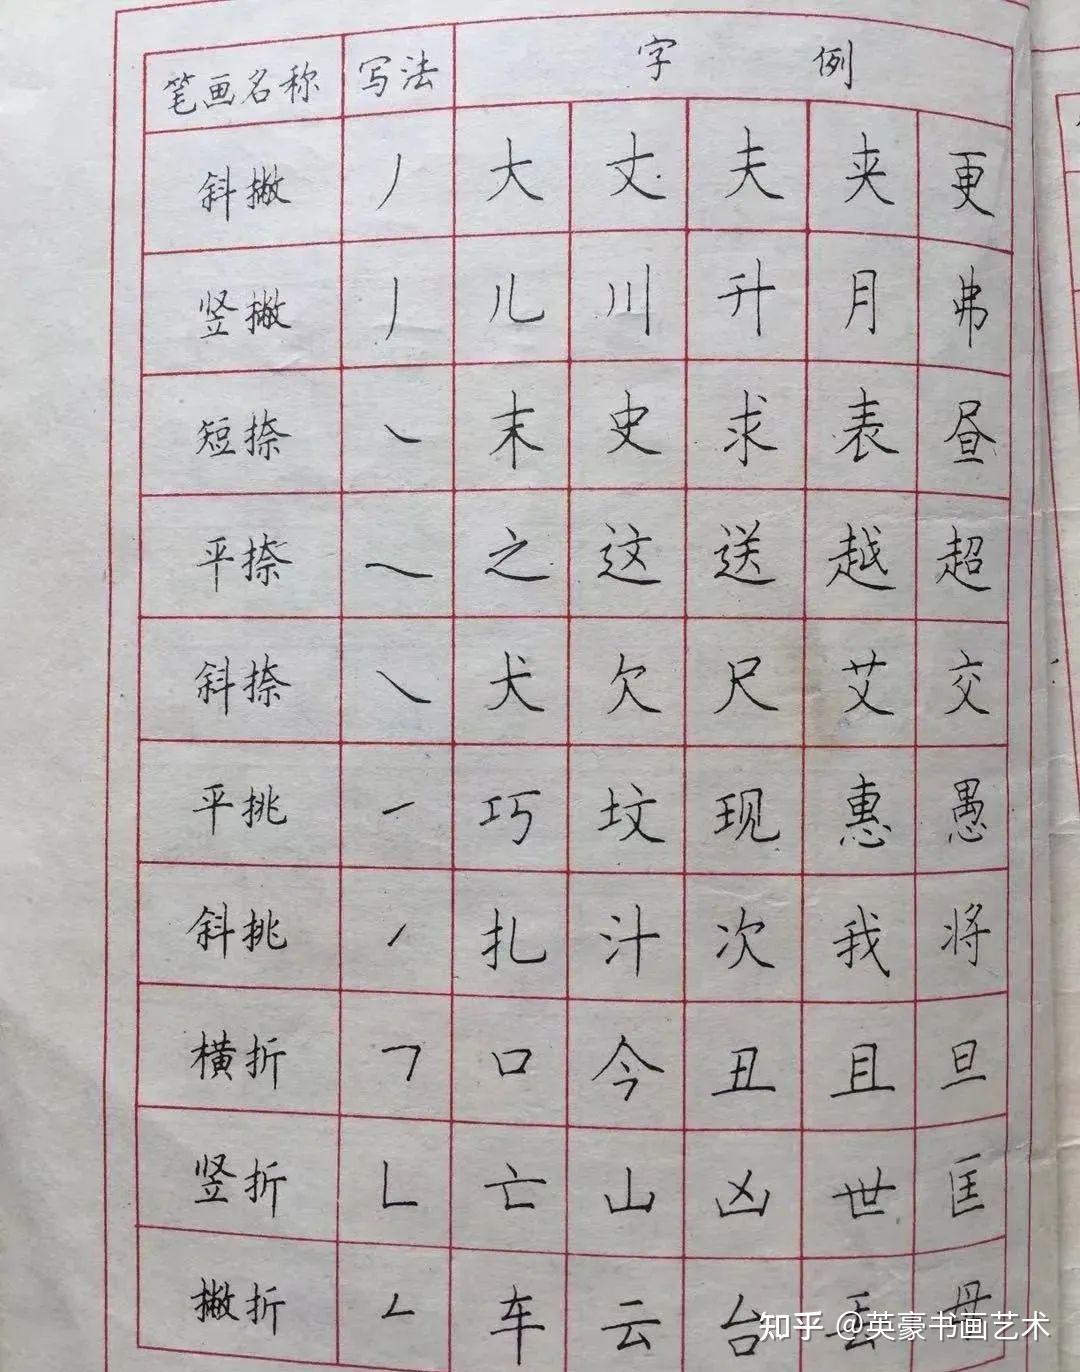 笔画名称 写法 字 例
斜撇 丿 大 丈 夫 夹 更
竖撇 丿 儿 川 升 月 弗
短捺 ㇏ 末 史 求 表 昼
平捺 ㇏ 之 这 送 越 超
斜捺 ㇏ 犬 欠 尺 艾 交
平挑 ㇀ 巧 坟 现 惠 愚
斜挑 ㇀ 扎 汁 次 我 将
横折 ㇕ 口 今 丑 且 旦
竖折 ㇗ 亡 山 凶 世 匡
撇折 ㇜ 车 云 台 丢 母
知乎 @英豪书画艺术